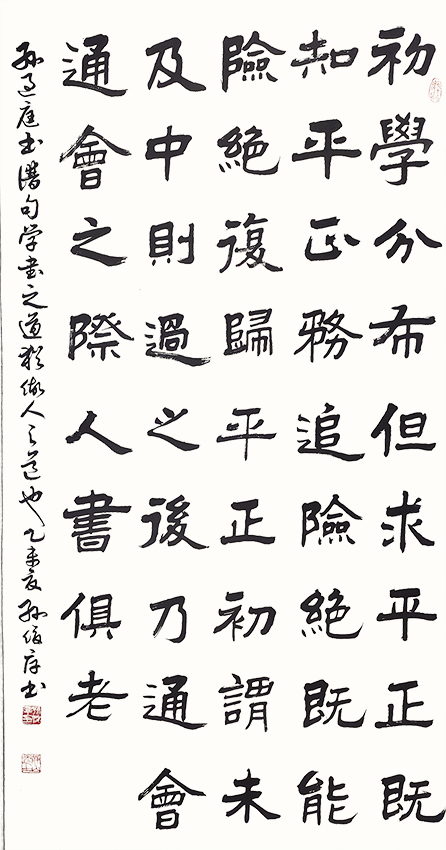 初學分布但求平正既
知平正務追險絕既能
險絕復歸平正初謂未
及中則過之後乃通會
通會之際人書俱老
孙过庭书谱句学書之道犹做人之道也乙未夏孙书